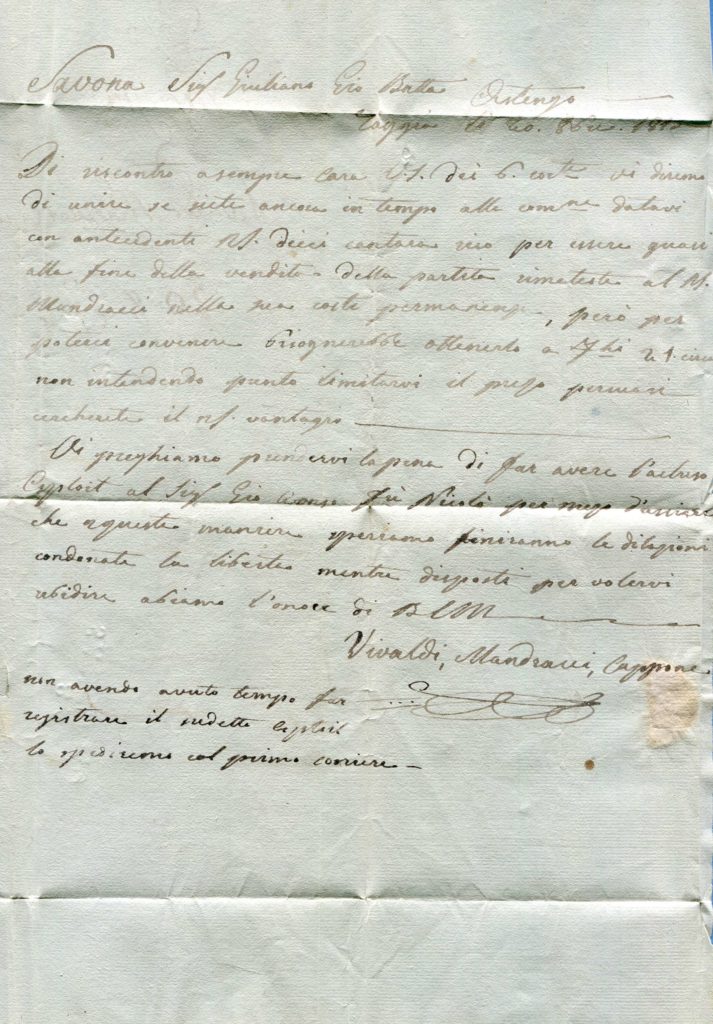 Savona Sig.r Giuliano Gio Batta Astengo
Taggia li 20. 8bre. 1815
Di riscontro a sempre cara V.S. dei 6. corte. vi diremo
di unire se siete ancora in tempo alla comne. datavi
con antecedenti dieci cantara riso per essere quasi
alla fine della vendita della partita rimasta al
Mandracci nella sua costì permanenza, però per
poterci convenire bisognerebbe ottenerlo a 24 circa
non intendendo punto limitarvi il prezzo persuasi
cercherete il vantagio
Vi preghiamo prendervi la pena di far avere l'acluso
Exploit al Sig.r Gio fù Nicolò per mezo d'usciere
che a questa maniera sperramo finiranno le dilazioni
condonate la libertà mentre disposti per volervi
ubidire abiamo l'onore di BLM
Vivaldi, Mandracci, Cappone
non avendo avuto tempo far
registrare il sudetto exploit
lo spediremo col primo corriere